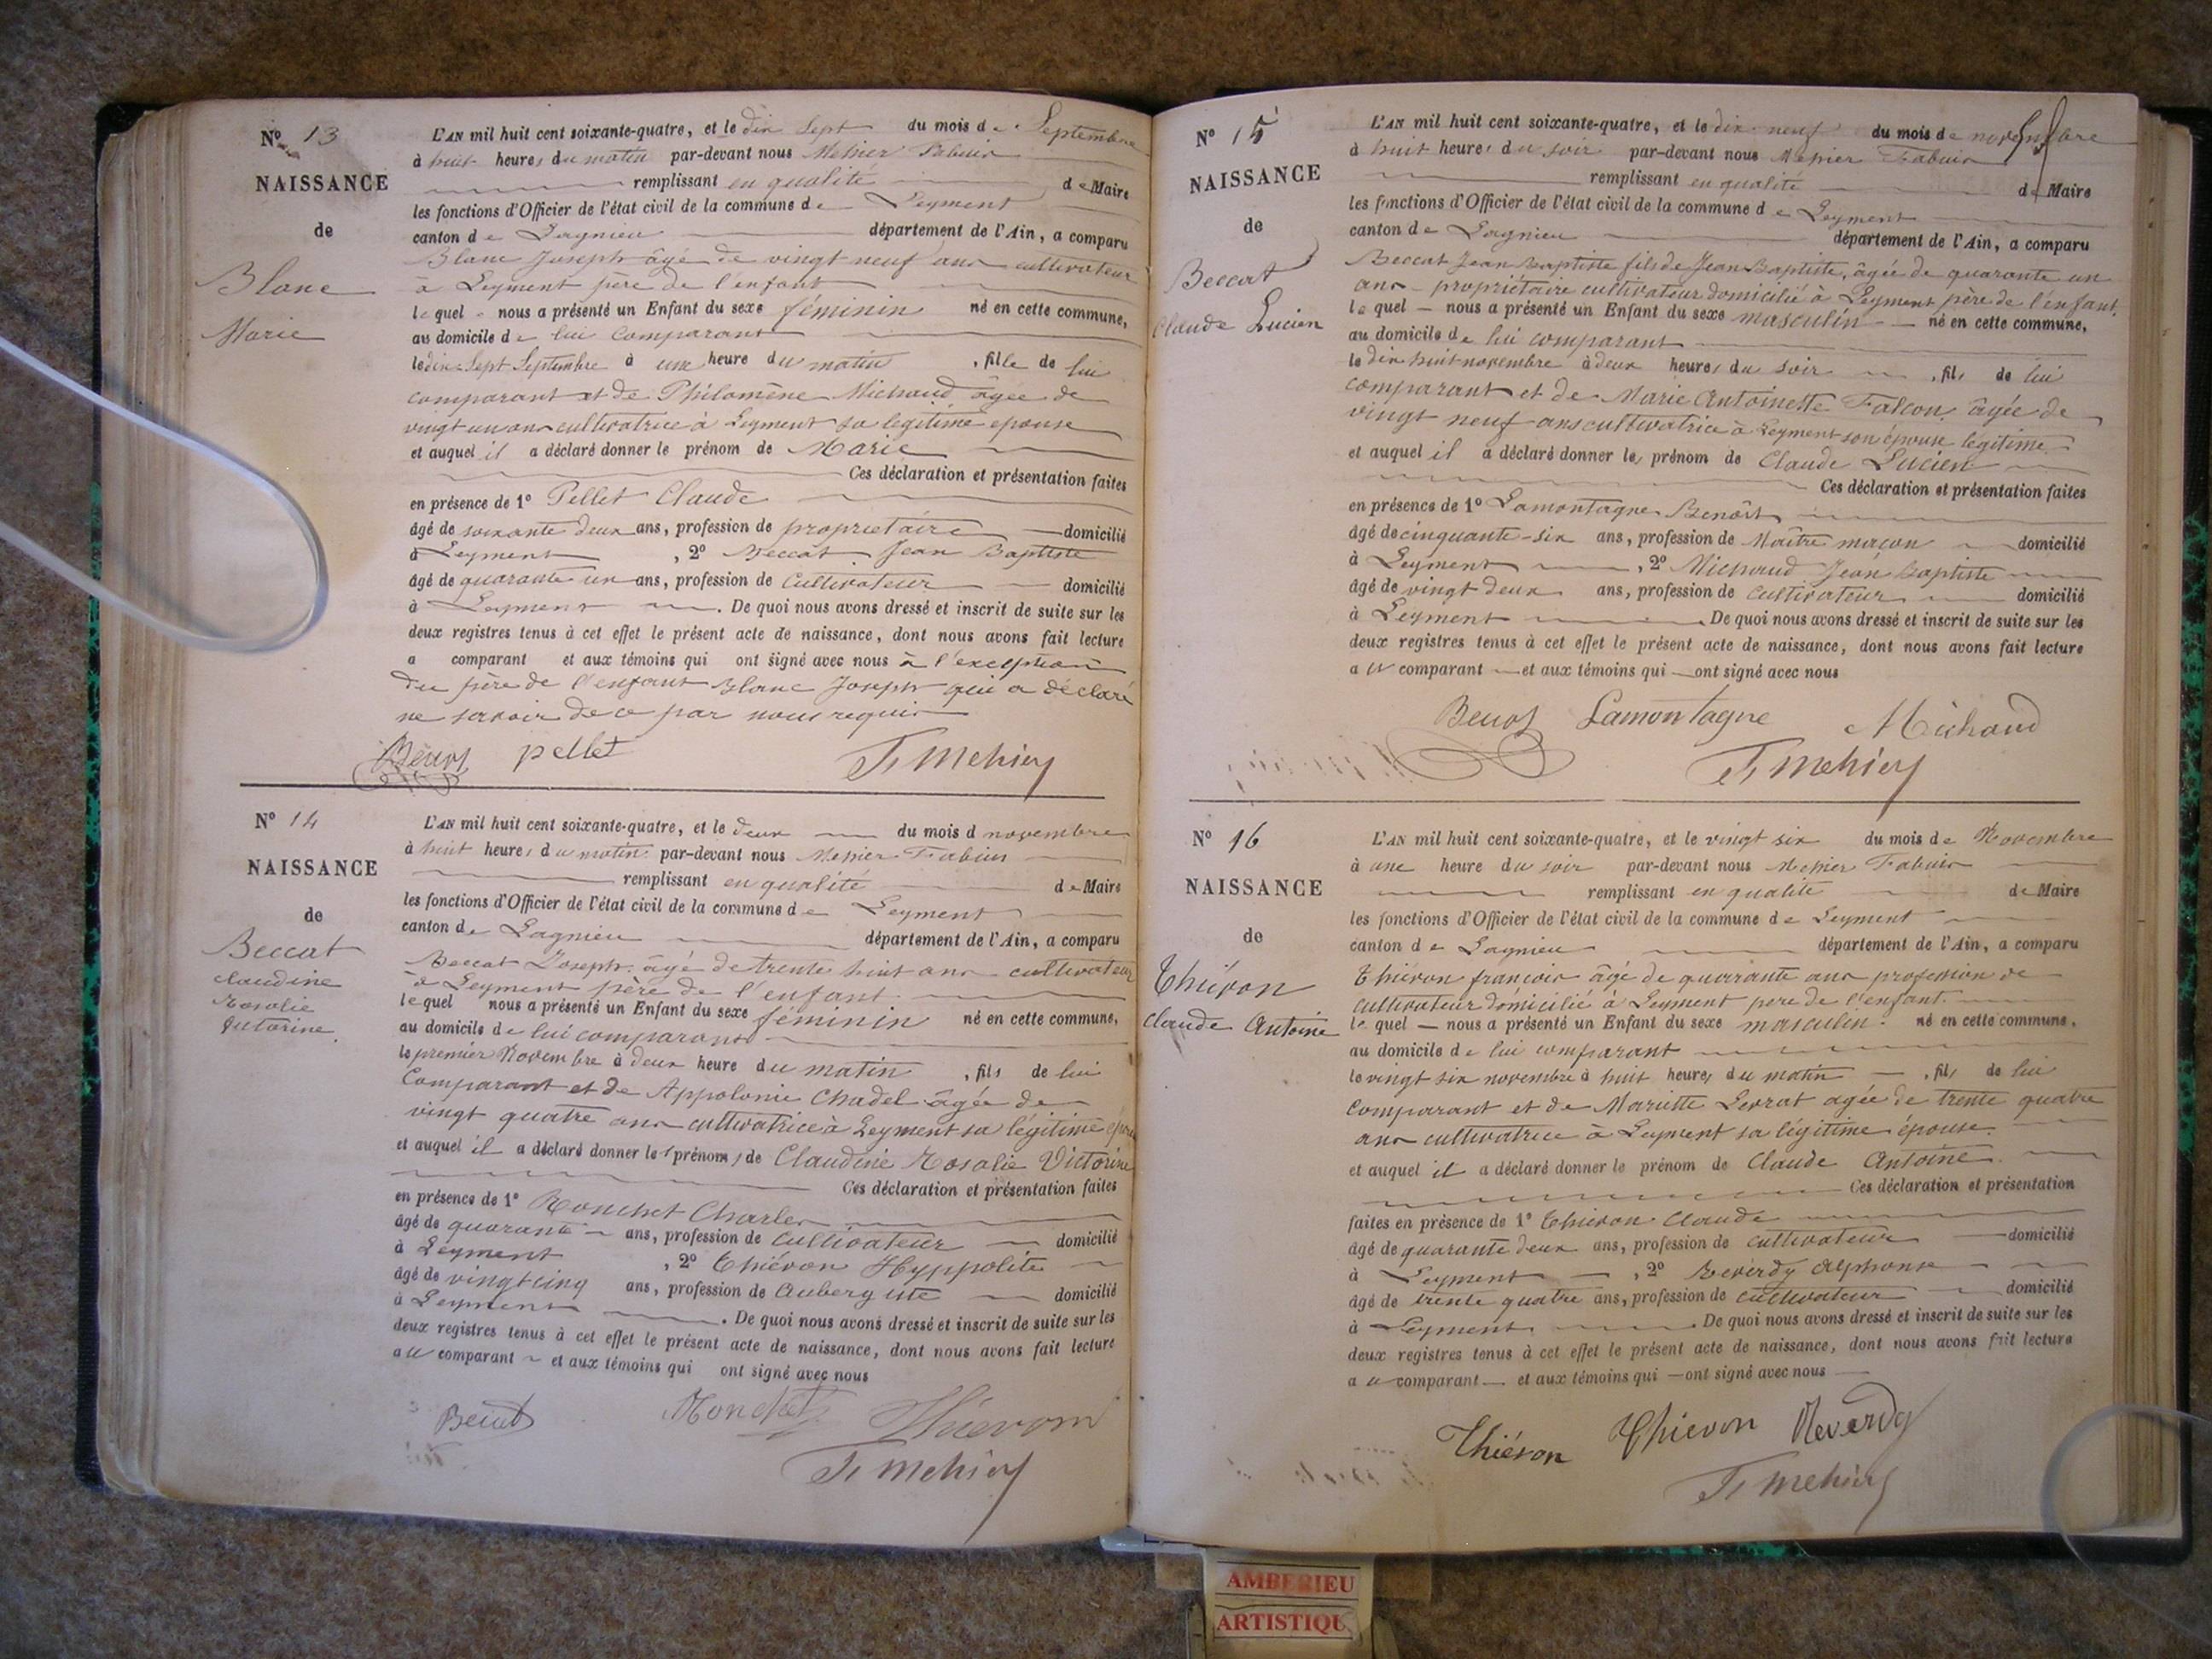 N° 13
NAISSANCE
de
Blanc
Marie
L'AN mil huit cent soixante-quatre, et le dix Sept du mois de Septembre
à huit heures du matin par-devant nous Mehier Fabien
remplissant en qualité de Maire
les fonctions d'Officier de l'état civil de la commune de Leyment
canton de Lagnieu département de l'Ain, a comparu
Blanc Joseph âgé de vingt neuf ans cultivateur
à Leyment père de l'enfant
lequel nous a présenté un Enfant du sexe féminin né en cette commune,
au domicile de lui comparant
le dix-Sept Septembre à une heure du matin, fille de lui
comparant et de Philomène Michaud âgée de
vingt un ans cultivatrice à Leyment sa légitime epouse
et auquel il a déclaré donner le prénom de Marie
Ces déclaration et présentation faites
en présence de 1° Pellet Claude
âgé de soixante deux ans, profession de propriétaire domicilié
à Leyment, 2° Beccat Jean Baptiste
âgé de quarante un ans, profession de Cultivateur domicilié
à Leyment. De quoi nous avons dressé et inscrit de suite sur les
deux registres tenus à cet effet le présent acte de naissance, dont nous avons fait lecture
a comparant et aux témoins qui ont signé avec nous à l'exception
du père de l'enfant Blanc Joseph qui a déclaré
ne savoir de ce par nous requis
pellet F. Mehier
N° 14
NAISSANCE
de
Beccat
claudine
Rosalie
Victorine
L'AN mil huit cent soixante-quatre, et le deux du mois d novembre
à huit heures du matin par-devant nous Mehier Fabien
remplissant en qualité de Maire
les fonctions d'Officier de l'état civil de la commune de Leyment
canton de Lagnieu département de l'Ain, a comparu
Beccat Joseph âgé de trente huit ans cultivateur
à Leyment père de l'enfant
lequel nous a présenté un Enfant du sexe féminin né en cette commune,
au domicile de lui comparant
le premier Novembre à deux heure du matin, fils de lui
Comparant et de Appolonie Chadel âgée de
vingt quatre ans cultivatrice à Leyment sa légitime épouse
et auquel il a déclaré donner les prénoms de Claudine Rosalie Victorine
Ces déclaration et présentation faites
en présence de 1° Ronchet Charles
âgé de quarante ans, profession de Cultivateur domicilié
à Leyment, 2° Thiévon Hyppolite
âgé de vingt cinq ans, profession de Aubergiste domicilié
à Leyment. De quoi nous avons dressé et inscrit de suite sur les
deux registres tenus à cet effet le présent acte de naissance, dont nous avons fait lecture
au comparant et aux témoins qui ont signé avec nous
Ronchet Thievon
F. Mehier
N° 15
NAISSANCE
de
Beccat
Claude Lucien
L'AN mil huit cent soixante-quatre, et le dix-neuf du mois de novembre
à huit heures du soir par-devant nous Mehier Fabien
remplissant en qualité de Maire
les fonctions d'Officier de l'état civil de la commune de Leyment
canton de Lagnieu département de l'Ain, a comparu
Beccat Jean Baptiste fils de Jean Baptiste, âgée de quarante un
ans propriétaire cultivateur domicilié à Leyment père de l'enfant,
lequel nous a présenté un Enfant du sexe masculin né en cette commune,
au domicile de lui comparant
le dix huit novembre à deux heures du soir, fils de lui
comparant et de Marie Antoinette Falcon âgée de
vingt neuf ans cultivatrice à Leyment son épouse légitime
et auquel il a déclaré donner les prénom de Claude Lucien
Ces déclaration et présentation faites
en présence de 1° Lamontagne Benoît
âgé de cinquante-six ans, profession de Maître maçon domicilié
à Leyment, 2° Michaud Jean Baptiste
âgé de vingt deux ans, profession de cultivateur domicilié
à Leyment. De quoi nous avons dressé et inscrit de suite sur les
deux registres tenus à cet effet le présent acte de naissance, dont nous avons fait lecture
au comparant et aux témoins qui ont signé avec nous
Lamontagne Michaud
F. Mehier
N° 16
NAISSANCE
de
Thiévon
Claude Antoine
L'AN mil huit cent soixante-quatre, et le vingt six du mois de Novembre
à une heure du soir par-devant nous Mehier Fabien
remplissant en qualité de Maire
les fonctions d'Officier de l'état civil de la commune de Leyment
canton de Lagnieu département de l'Ain, a comparu
Thiévon françois âgé de quarante ans profession de
cultivateur domicilié à Leyment père de l'enfant
lequel nous a présenté un Enfant du sexe masculin né en cette commune,
au domicile de lui comparant
le vingt six novembre à huit heures du matin, fils de lui
comparant et de Mariette Serrat agée de trente quatre
ans cultivatrice à Leyment sa légitime épouse
et auquel il a déclaré donner le prénom de Claude Antoine
Ces déclaration et présentation
faites en présence de 1° Thiévon Claude
âgé de quarante deux ans, profession de cultivateur domicilié
à Leyment, 2° Reverdy Alphonse
âgé de trente quatre ans, profession de cultivateur domicilié
à Leyment. De quoi nous avons dressé et inscrit de suite sur les
deux registres tenus à cet effet le présent acte de naissance, dont nous avons fait lecture
au comparant et aux témoins qui ont signé avec nous
Thiévon Thievon Reverdy
F. Mehier
AMBERIEU
ARTISTIQU